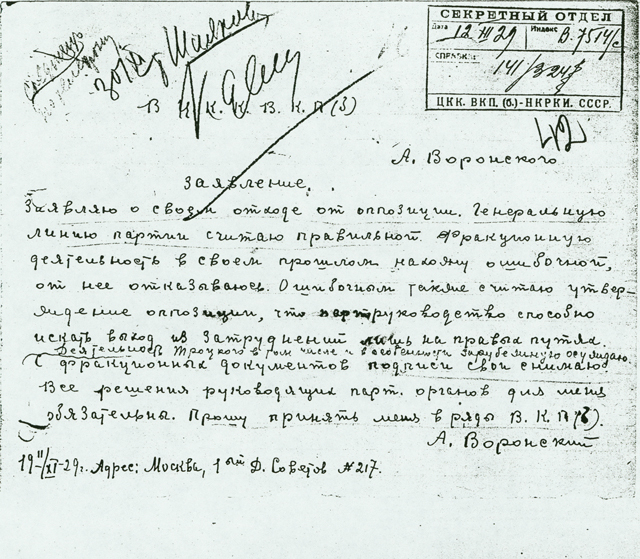 СЕКРЕТНЫЙ ОТДЕЛ
Дата Индекс
12 XII 29 В.7514/с
СПРАВКА:
141/
ЦКК. ВКП. (б.)-НКРКИ. СССР.
42
В Ц.К.К. В.К.П(б)
А. Воронского
Заявление.
Заявляю о своем отходе от оппозиции. Генеральную
линию партии считаю правильной. Фракционную
деятельность в своем прошлом нахожу ошибочной,
от нее отказываюсь. Ошибочным также считаю утвер-
ждение оппозиции, что партруководство способно
искать выход из затруднений лишь на правых путях.
Деятельность Троцкого в том числе и в особенности зарубежную осуждаю.
С фракционных документов подписи свои снимаю
Все решения руководящих парт. органов для меня
обязательны. Прошу принять меня в ряды В.К.П(б).
А. Воронский
19 11/XI-29г. Адрес: Москва, 1ый Д. Советов № 217.